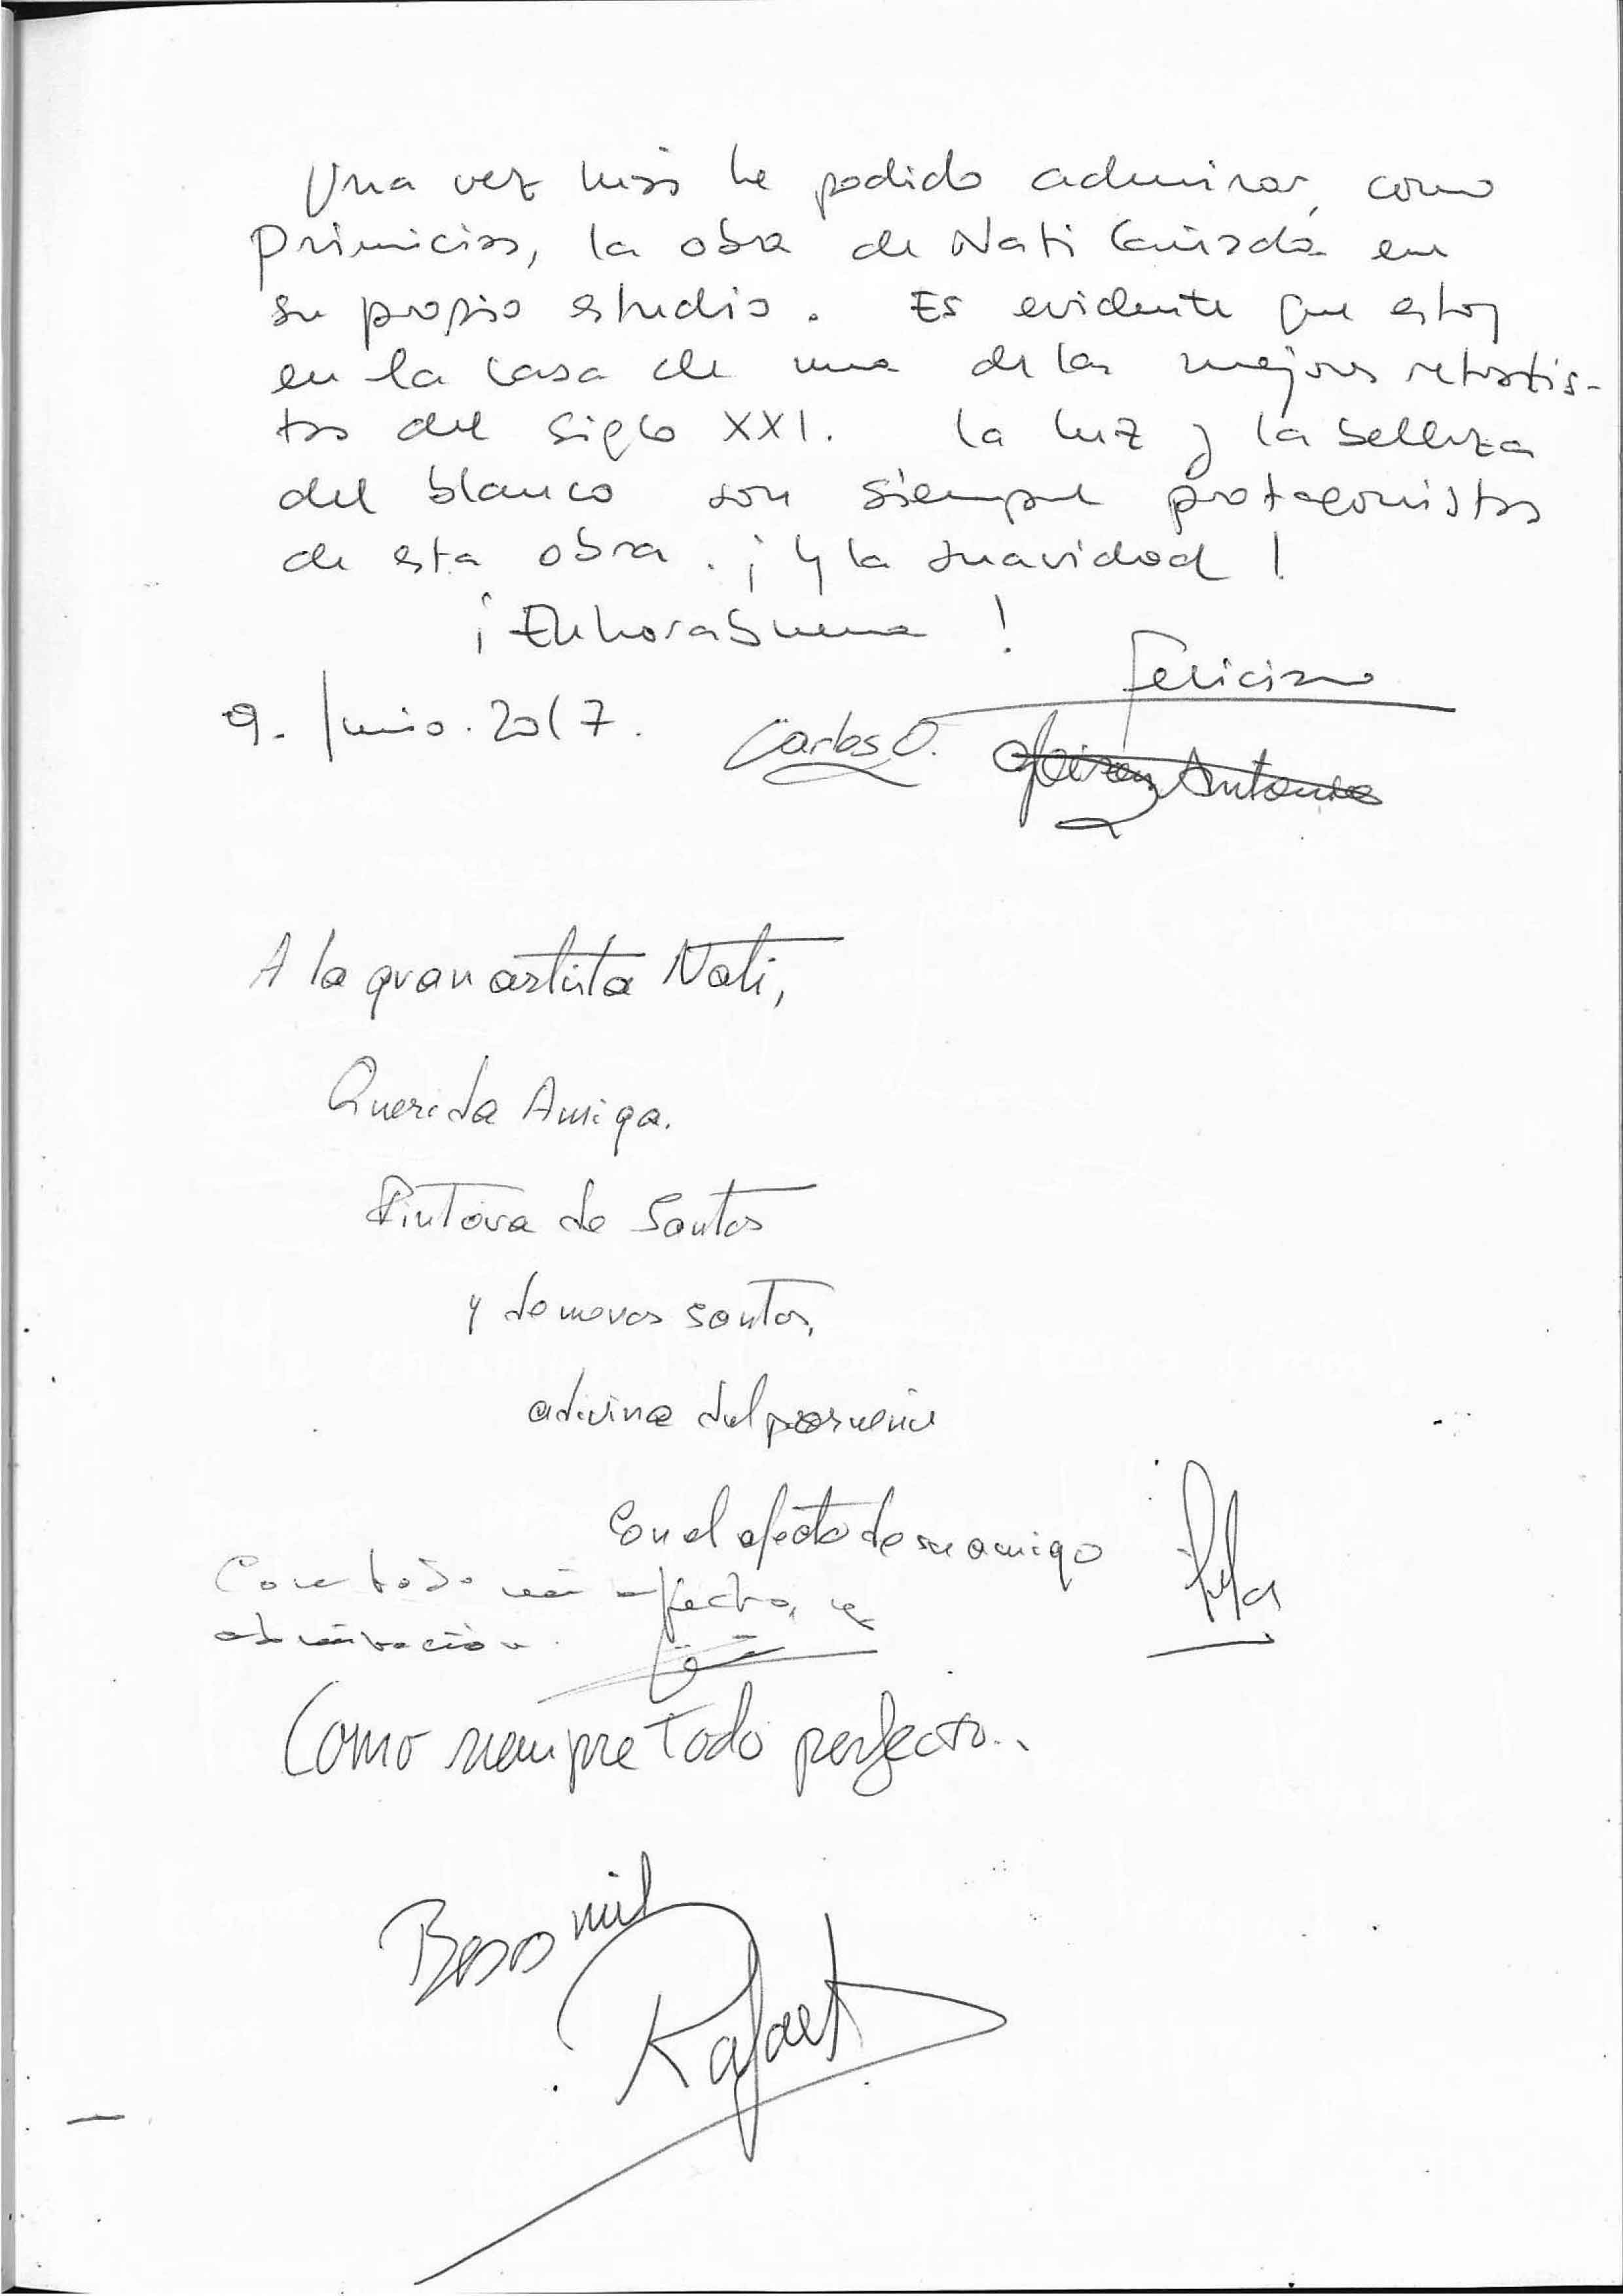 Una vez más he podido admirar, como
primicias, la obra de Nati Cañada en
su propio estudio. Es evidente que estoy
en la casa de una de las mejores retratis-
tas del siglo XXI. La luz y la belleza
del blanco son siempre protagonistas
de esta obra. ¡Y la suavidad!
¡Enhorabuena!
Feliciano
9. Junio. 2017.
Carlos O.
Antonio
A la gran artista Nati,
Querida Amiga.
Pintora de Santos
y de nuevos santos,
adivina del porvenir
Con el afecto de su amigo
Con todo mi afecto, y
admiración.
Como siempre todo perfecto..
Besos mil
Rafael